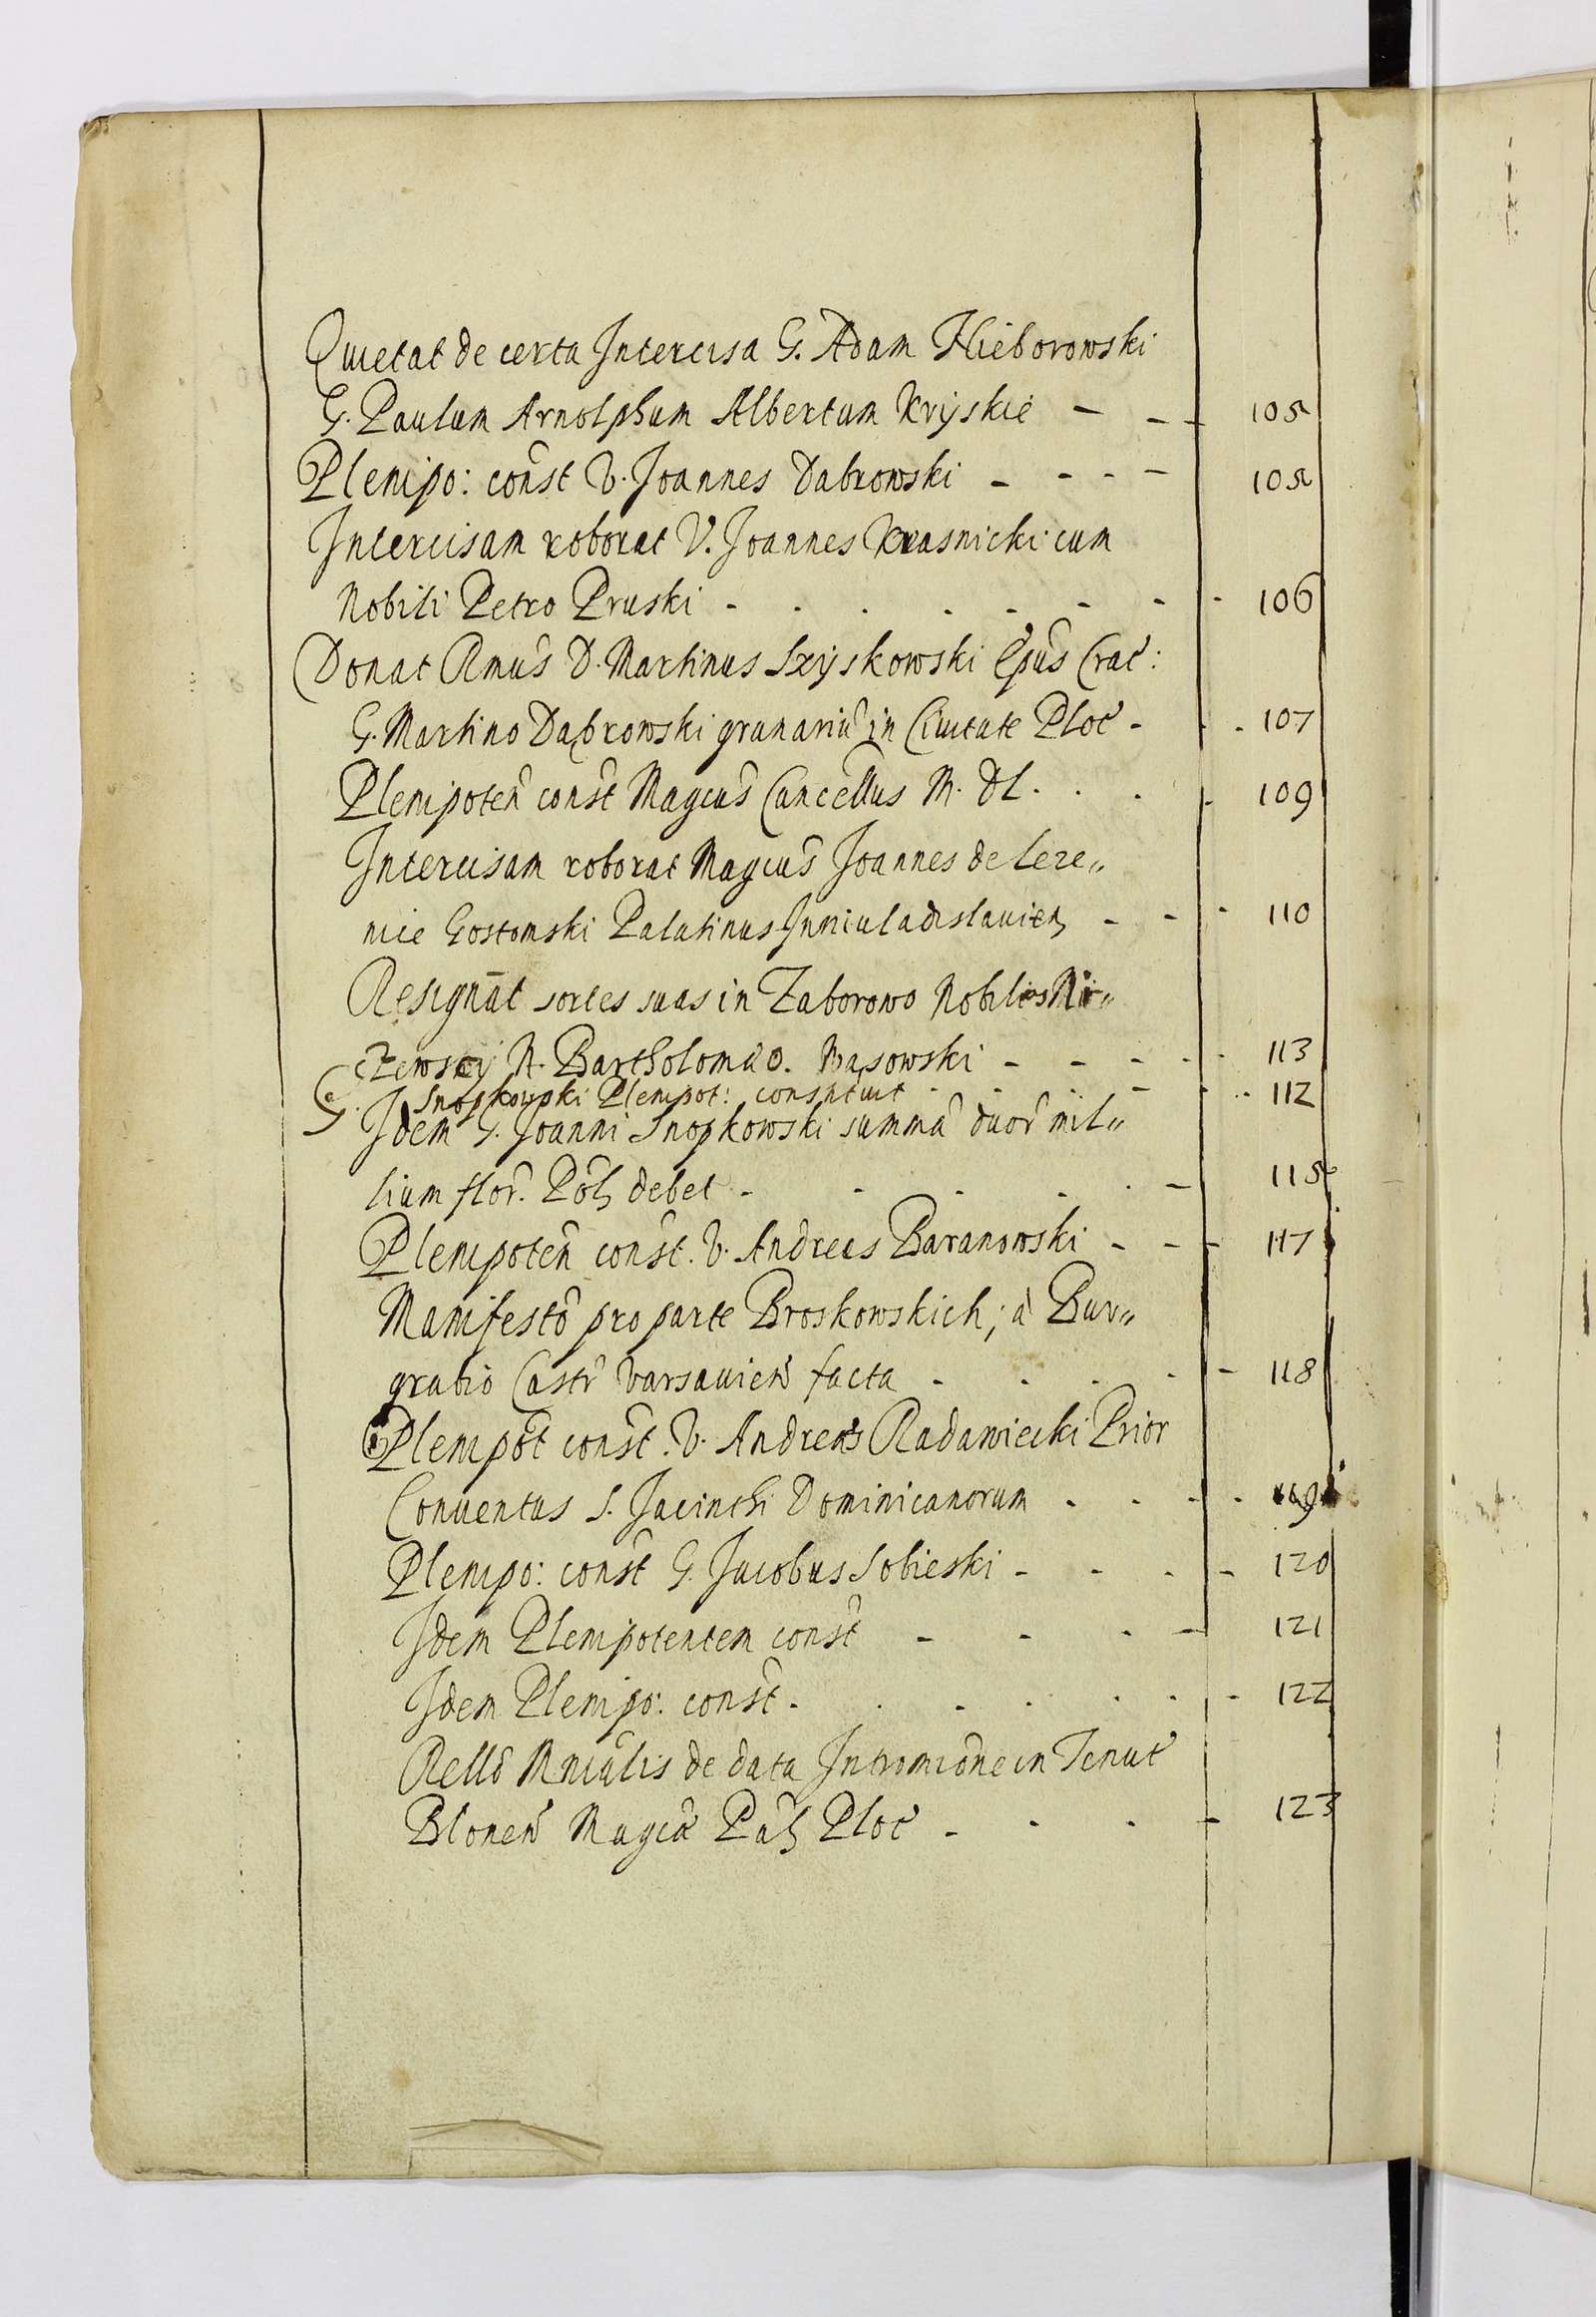 Quietat de certa Intercisa G. Adam Hieborowski
G. Paulum Arnolphum Albertum Kryskie - - - 105
Plenipo: const V. Joannes Dabrowski - - - - 105
Intercisam roborat V. Joannes Krasnicki cum
Nobili Petro Pruski - . . - - - - - 106
Donat Rmus D. Martinus Szyskowski Epus Crac:
G. Martino Dąbrowski granariu in Ciuitate Ploc - - 107
Plenipoten const Magcus Cancellus M. DL . . . - 109
Intercisam roborat Magcus Joannes de Leze„
nice Gostomski Palatinus Inniuladislauien - - - 110
Resignat sortes suas in Zaborowo Nobiles Ni„
czewscy N. Bartholomæo Wąsowski - - - - - 113
G. Snopkowski Plenipot: constituit - - - - - 112
Idem G. Joanni Snopkowski summa duor mil„
lium flor. Pol debet - - - - . - 115
Plenipoten const. V. Andreas Baranowski - - - 117
Manifesto pro parte Broskowskich; à Bur„
grabio Castr Varsauien facta - - - - - 118
Plenipot const. V. Andreas Radawiecki Prior
Conuentus S. Jacinthi Dominicanorum . - - - 119
Plenipo: const G. Jacobus Sobieski - - - - 120
Idem Plenipotentem const - - - - 121
Idem Plenipo: const - . - - - - - 122
Rello Mnialis de data Intromione in Tenut
Blonen Magci Pal Ploc - - - - 123